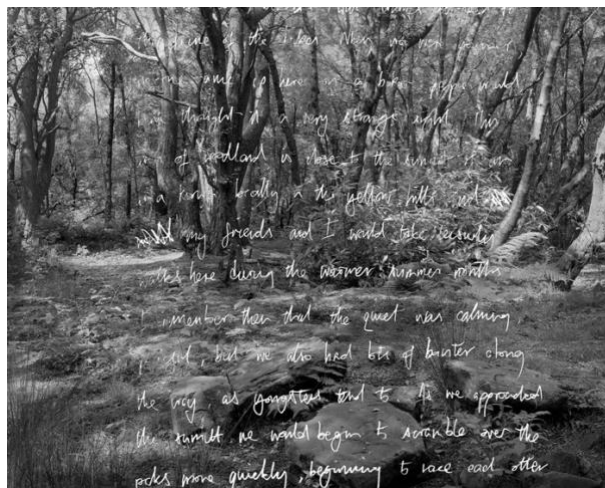 of the idea. Now
came up here in a
thought it a very strange sight. This
of woodland is close to the summit of an
area known locally as the yellow hills and
my friends and I would take leisurely
walks here during the warmer summer months
I remember then that the quiet was calming
, but we also had bits of banter along
the way, as youngsters tend to. As we approached
the summit we would begin to scramble over the
rocks more quickly, beginning to race each other